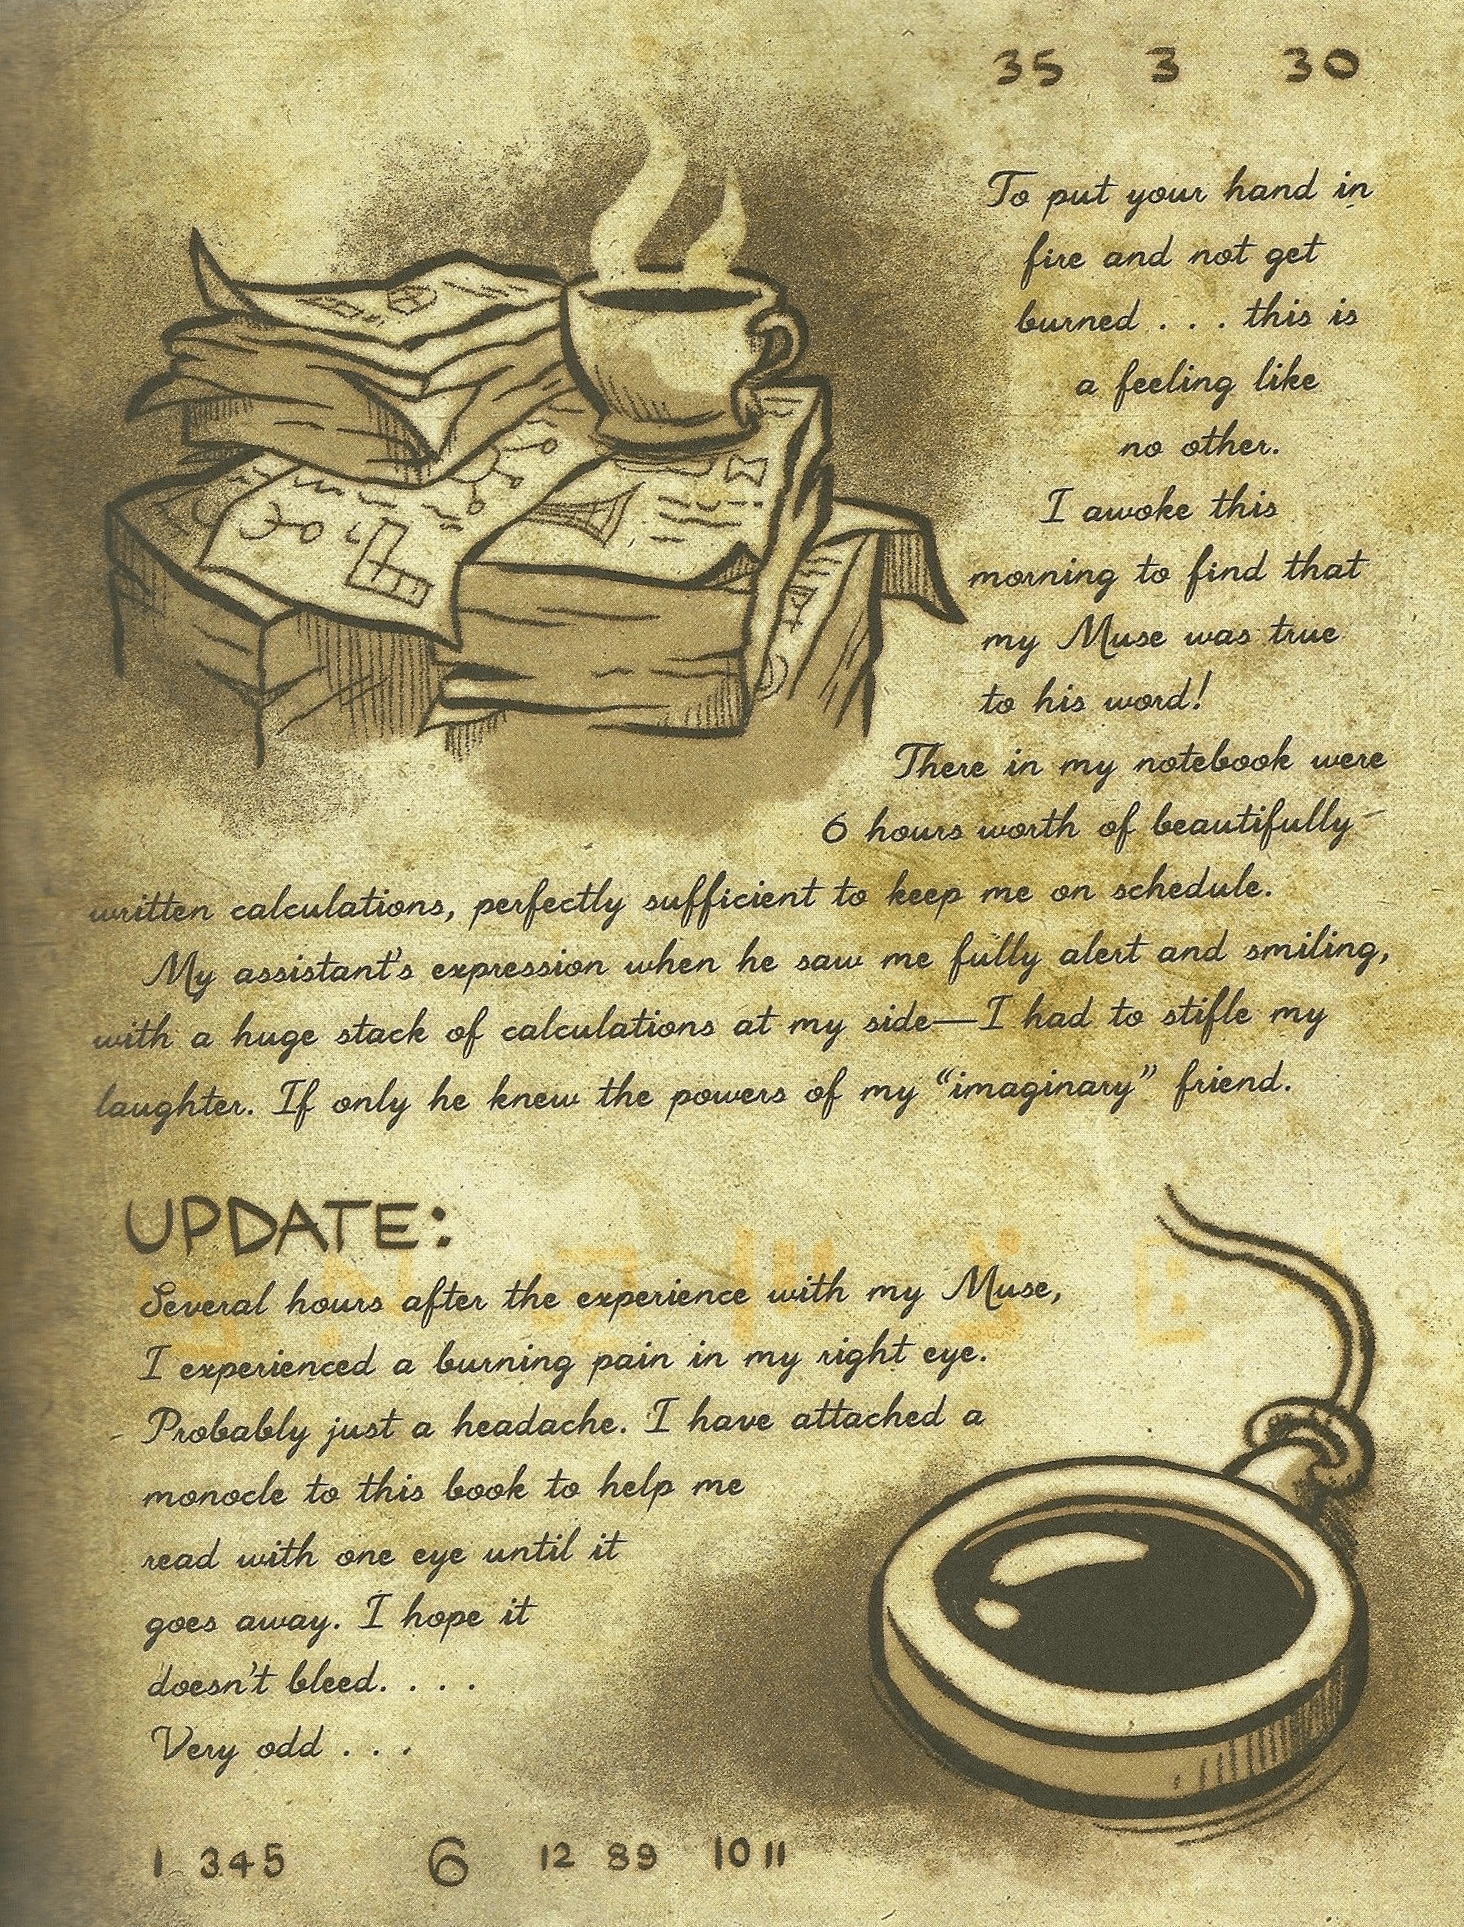 35 3 30
To put your hand in
fire and not get
burned . . . this is
a feeling like
no other.
I awoke this
morning to find that
my Muse was true
to his word!
There in my notebook were
6 hours worth of beautifully-
written calculations, perfectly sufficient to keep me on schedule.
My assistant's expression when he saw me fully alert and smiling,
with a huge stack of calculations at my side—I had to stifle my
laughter. If only he knew the powers of my “imaginary” friend.
UPDATE:
Several hours after the experience with my Muse,
I experienced a burning pain in my right eye.
Probably just a headache. I have attached a
monocle to this book to help me
read with one eye until it
goes away. I hope it
doesn't bleed. . . .
Very odd . . .
1 345 6 12 89 10 11